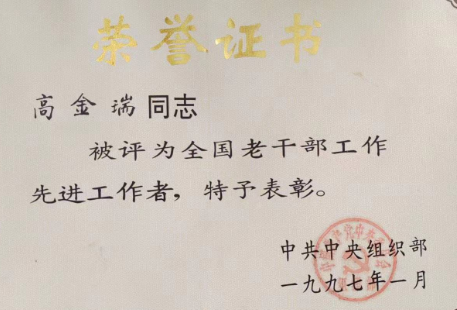 荣誉证书
高金瑞同志
被评为全国老干部工作
先进工作者，特予表彰。
中共中央组织部
一九九七年一月